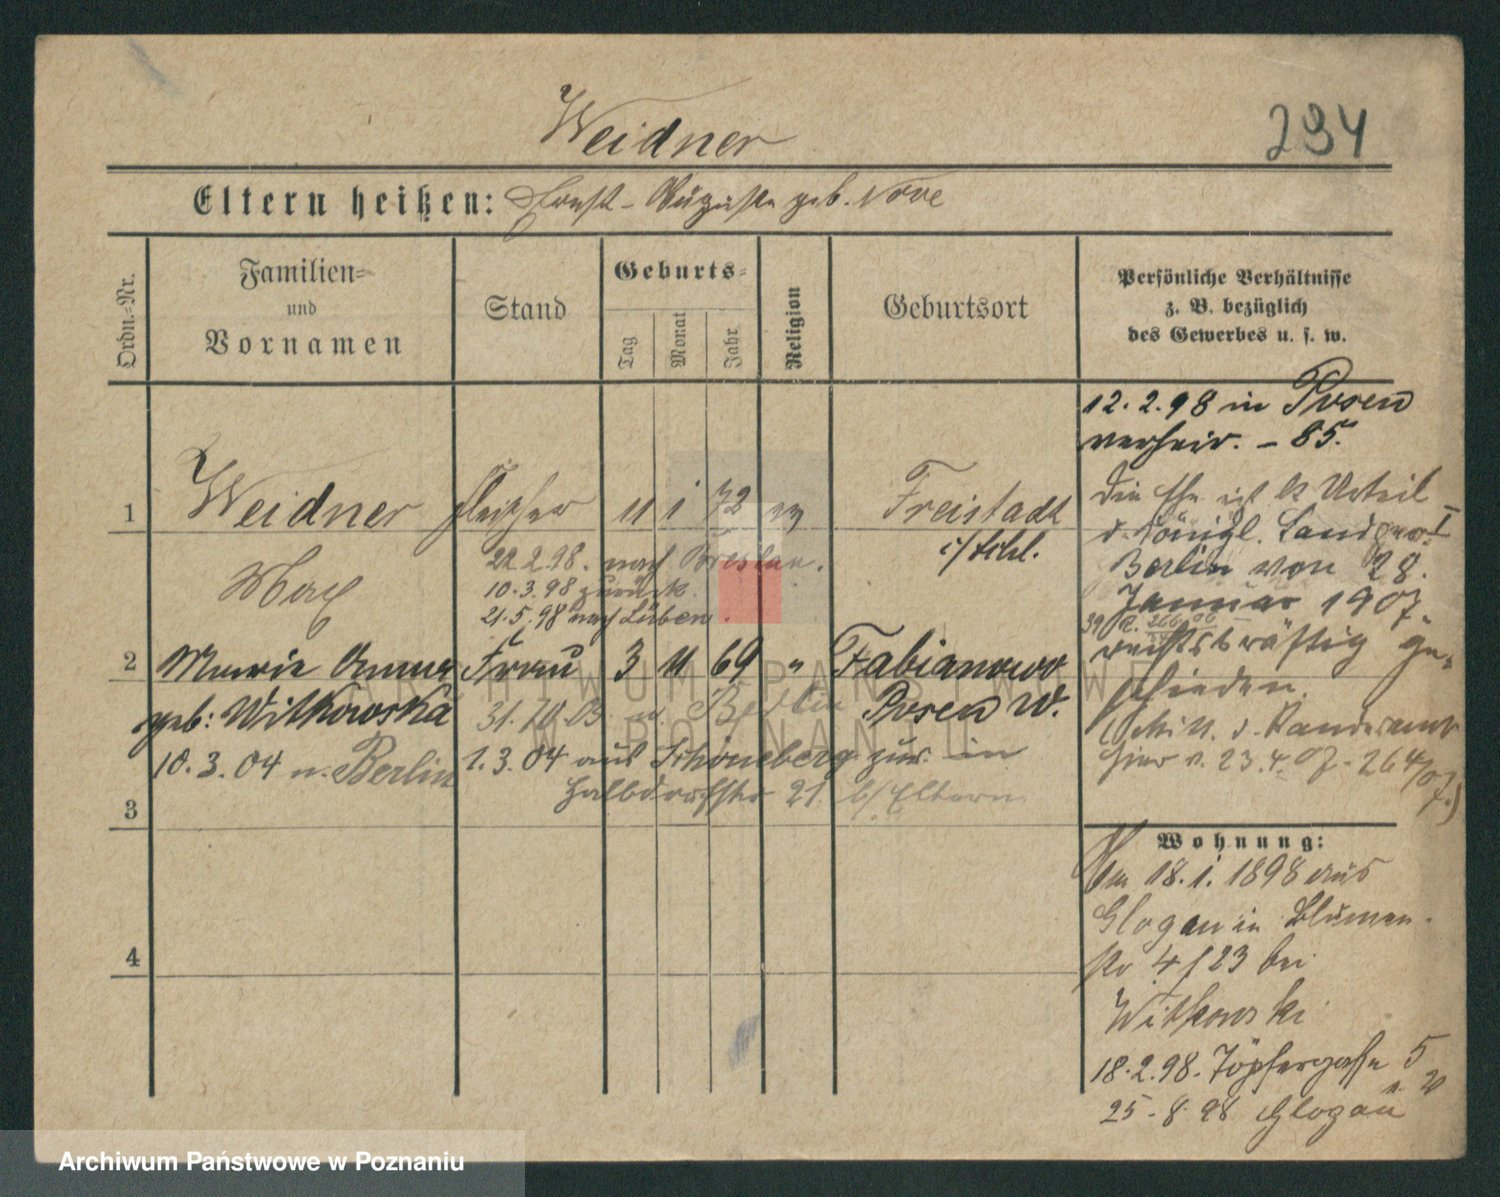 Weidner
294
Eltern heißen: Ernst - Auguste geb. Nove
Ordn.-Nr.
Familien-
und
Vornamen
Stand
Geburts-
Tag
Monat
Jahr
Religion
Geburtsort
Persönliche Verhältnisse
z. B. bezüglich
des Gewerbes u. s. w.
12.2.98 in Posen
verheir. - 85.
1 Weidner Fleischer 11 1 72 ev Freistadt
i/Schl.
Max
22.2.98. nach Breslau.
10.3.98 zurück.
21.5.98 nach Lüben.
2 Marie Anna Frau 3 11 69 " Fabianowo
geb: Witkowska 31.10.03 n. Berlin Posen W.
10.3.04 n. Berlin 1.3.04 aus Schöneberg zur. in
Halbdorfstr 21. b/Eltern
3
4
Die Ehe ist lt Urteil
d. Königl. Landger. I
Berlin von 28.
Januar 1907.
39 R.
rechtskräftig ge-
schieden.
hier v. 23.4.07 - 264/07.)
Wohnung:
Am 18.1.1898 aus
Glogau in Blumen-
str 4 / 23 bei
Witkowski
18.2.98. Töpfergasse 5
25.8.98 n. Glogau
ARCHIWUM PAŃSTWOWE
W POZNANIU
Archiwum Państwowe w Poznaniu